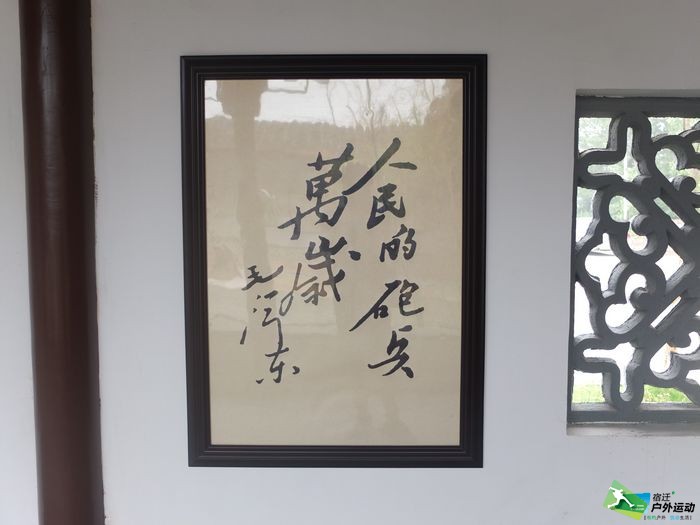 人民的砲兵
萬歲
毛泽东
宿迁
户外运动